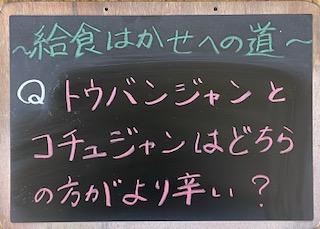 ～給食はかせへの道～
Q トウバンジャンと
コチュジャンはどちら
の方がより辛い？